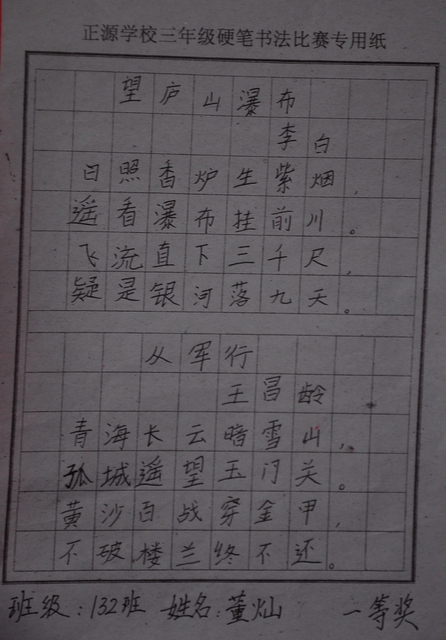 正源学校三年级硬笔书法比赛专用纸
望庐山瀑布
李白
日照香炉生紫烟，
遥看瀑布挂前川。
飞流直下三千尺，
疑是银河落九天。
从军行
王昌龄
青海长云暗雪山，
孤城遥望玉门关。
黄沙百战穿金甲，
不破楼兰终不还。
班级：132班 姓名：董灿 一等奖